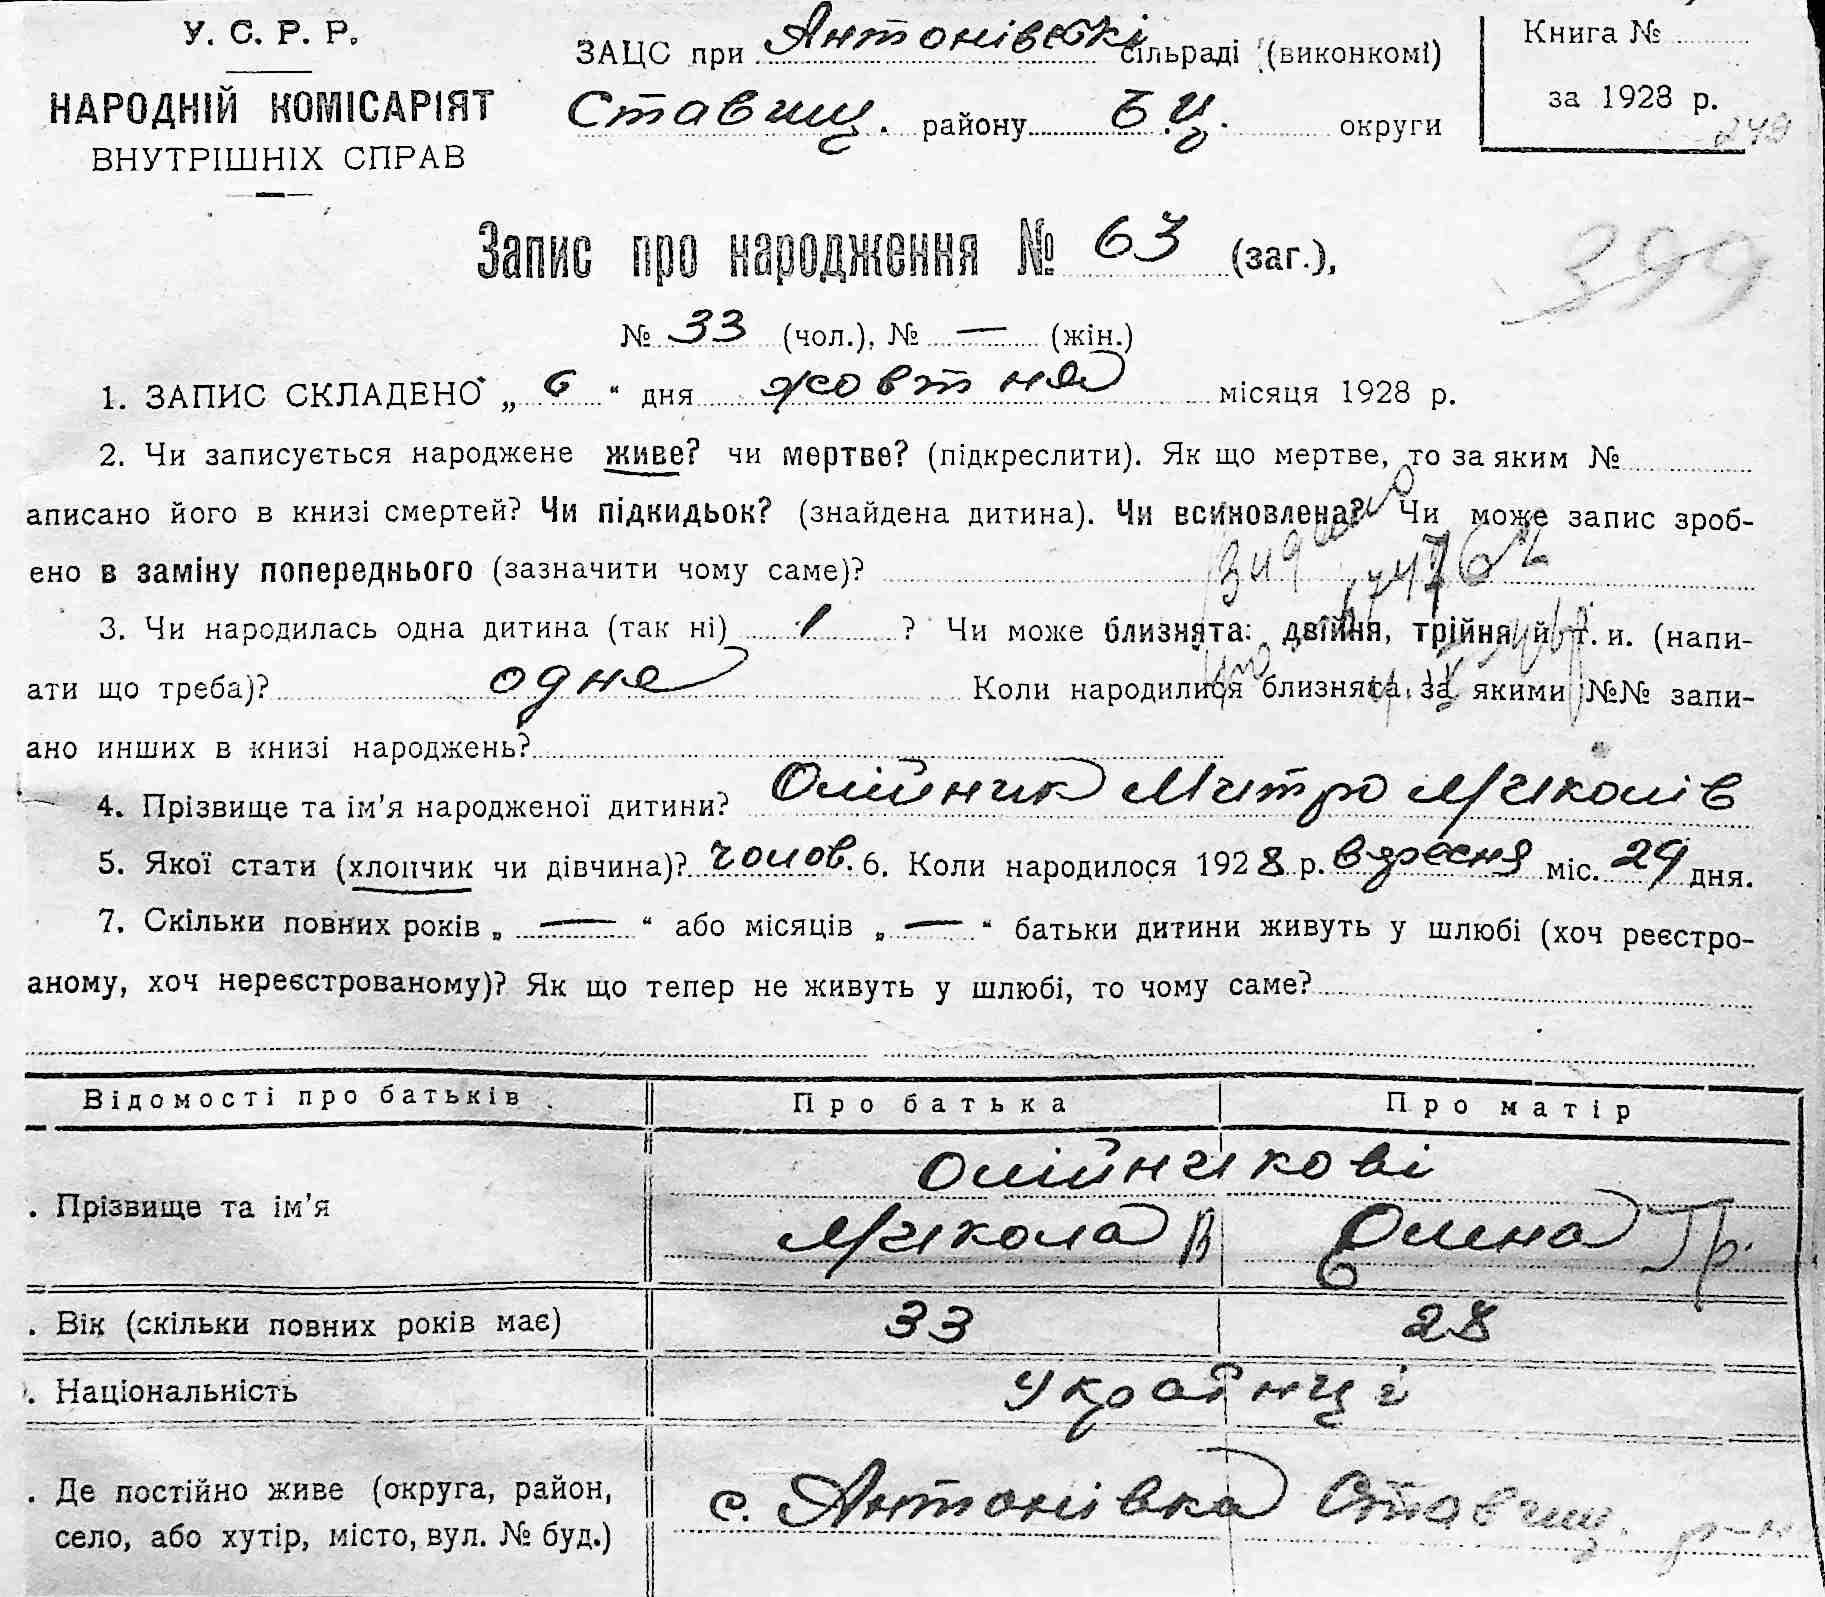 У. С. Р. Р.
НАРОДНІЙ КОМІСАРІЯТ
ВНУТРІШНІХ СПРАВ
ЗАЦС при Антонівській сільраді (виконкомі)
Ставищ. району Б.Ц. округи
Книга №
за 1928 р.
249
Запис про народження № 63 (заг.),
399
№ 33 (чол.), № — (жін.)
1. ЗАПИС СКЛАДЕНО „ 6 “ дня жовтня місяця 1928 р.
2. Чи записується народжене живе? чи мертве? (підкреслити). Як що мертве, то за яким №
аписано його в книзі смертей? Чи підкидьок? (знайдена дитина). Чи всиновлена? Чи може запис зроб-
ено в заміну попереднього (зазначити чому саме)?
3. Чи народилась одна дитина (так ні) 1 ? Чи може близнята: двійня, трійня й т. и. (напи-
ати що треба)? одне Коли народилися близнята, за якими №№ запи-
ано инших в книзі народжень?
4. Прізвище та ім’я народженої дитини? Олійник Митро Миколів
5. Якої стати (хлопчик чи дівчина)? чолов. 6. Коли народилося 1928 р. вересня міс. 29 дня.
7. Скільки повних років „ — “ або місяців „ — “ батьки дитини живуть у шлюбі (хоч реєстро-
аному, хоч нереєстрованому)? Як що тепер не живуть у шлюбі, то чому саме?
Відомості про батьків Про батька Про матір
. Прізвище та ім’я Олійникові
Микола В Олена Гр.
. Вік (скільки повних років має) 33 28
. Національність Українці
. Де постійно живе (округа, район,
село, або хутір, місто, вул. № буд.) с. Антонівка Ставищ. р-н